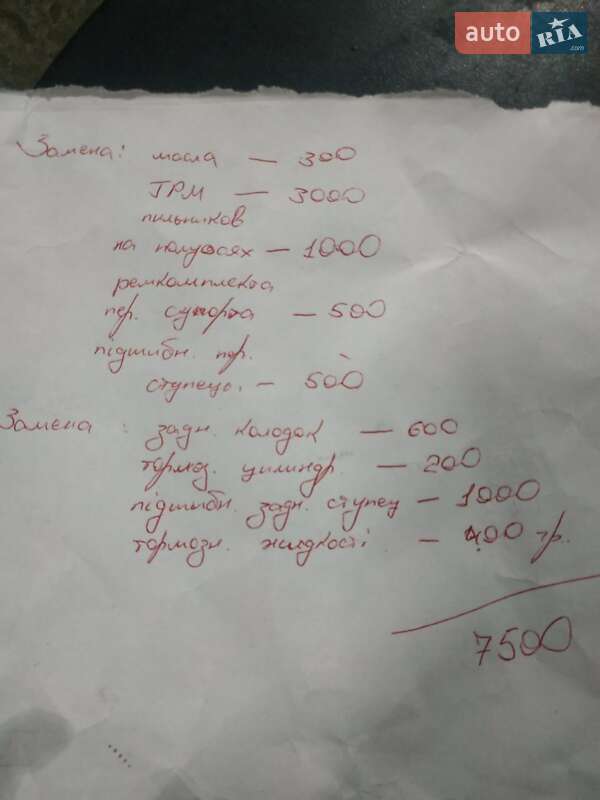 auto RIA .com
Замена: масла — 300
ГРМ — 3000
пильников
на полуосях — 1000
ремкомплекта
пер. супорта — 500
підшибн. пер.
ступец. — 500
Замена : задн. колодок — 600
тормоз. цилиндр. — 200
підшибн. задн. ступец — 1000
тормозн. жидкості — 400 гр.
7500